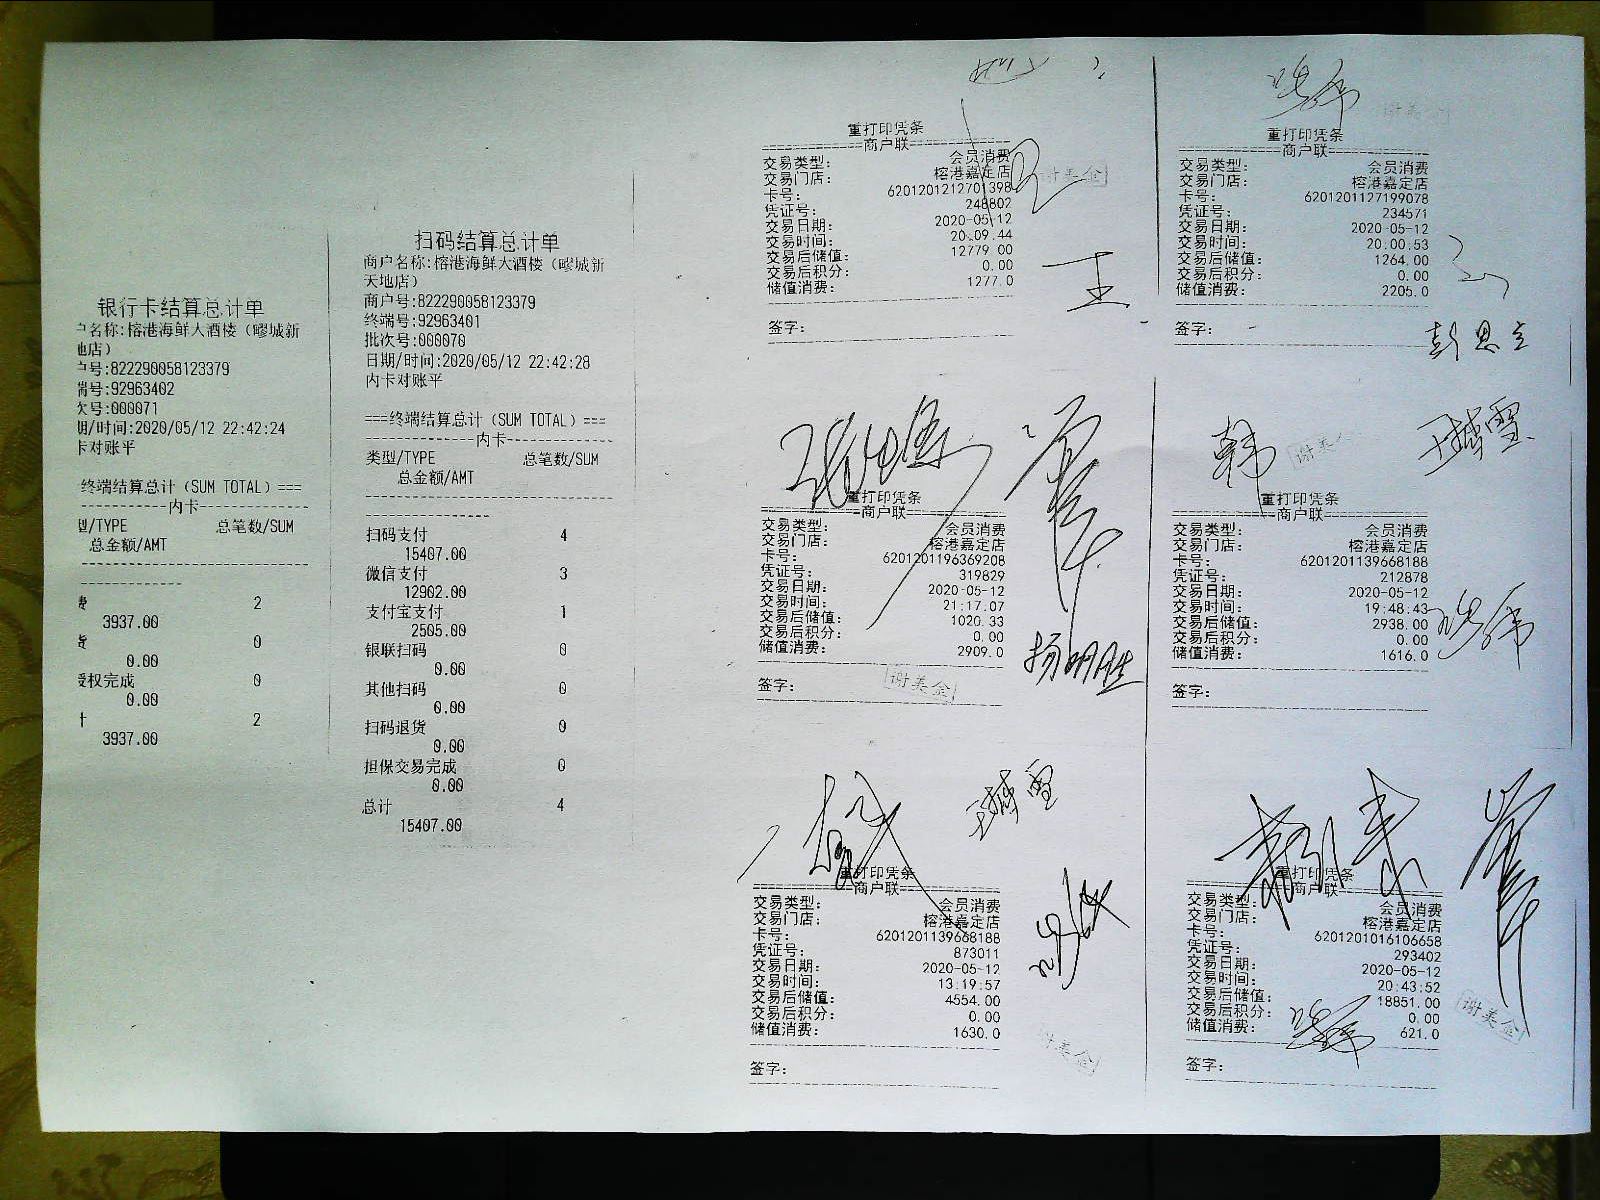 银行卡结算总计单
户名称:榕港海鲜大酒楼（疁城新
地店）
户号:822290058123379
端号:92963402
次号:000071
期/时间:2020/05/12 22:42:24
卡对账平
终端结算总计（SUM TOTAL）===
内卡
型/TYPE 总笔数/SUM
总金额/AMT
费 2
3937.00
货 0
0.00
授权完成 0
0.00
计 2
3937.00
扫码结算总计单
商户名称:榕港海鲜大酒楼（疁城新
天地店）
商户号:822290058123379
终端号:92963401
批次号:000070
日期/时间:2020/05/12 22:42:28
内卡对账平
===终端结算总计（SUM TOTAL）===
内卡
类型/TYPE 总笔数/SUM
总金额/AMT
扫码支付 4
15407.00
微信支付 3
12902.00
支付宝支付 1
2505.00
银联扫码 0
0.00
其他扫码 0
0.00
扫码退货 0
0.00
担保交易完成 0
0.00
总计 4
15407.00
重打印凭条
商户联
交易类型: 会员消费
交易门店: 榕港嘉定店
卡号: 6201201212701398
凭证号: 248802
交易日期: 2020-05-12
交易时间: 20:09:44
交易后储值: 12779.00
交易后积分: 0.00
储值消费: 1277.0
签字:
谢美金
王
谢美金
重打印凭条
商户联
交易类型: 会员消费
交易门店: 榕港嘉定店
卡号: 6201201127199078
凭证号: 234571
交易日期: 2020-05-12
交易时间: 20:00:53
交易后储值: 1264.00
交易后积分: 0.00
储值消费: 2205.0
签字:
重打印凭条
商户联
交易类型: 会员消费
交易门店: 榕港嘉定店
卡号: 6201201196369208
凭证号: 319829
交易日期: 2020-05-12
交易时间: 21:17:07
交易后储值: 1020.33
交易后积分: 0.00
储值消费: 2909.0
杨明胜
签字:
谢美金
韩
谢美金
重打印凭条
商户联
交易类型: 会员消费
交易门店: 榕港嘉定店
卡号: 6201201139668188
凭证号: 212878
交易日期: 2020-05-12
交易时间: 19:48:43
交易后储值: 2938.00
交易后积分: 0.00
储值消费: 1616.0
签字:
重打印凭条
商户联
交易类型: 会员消费
交易门店: 榕港嘉定店
卡号: 6201201139668188
凭证号: 873011
交易日期: 2020-05-12
交易时间: 13:19:57
交易后储值: 4554.00
交易后积分: 0.00
储值消费: 1630.0
签字:
谢美金
重打印凭条
商户联
交易类型: 会员消费
交易门店: 榕港嘉定店
卡号: 6201201016106658
凭证号: 293402
交易日期: 2020-05-12
交易时间: 20:43:52
交易后储值: 18851.00
交易后积分: 0.00
储值消费: 621.0
签字:
谢美金